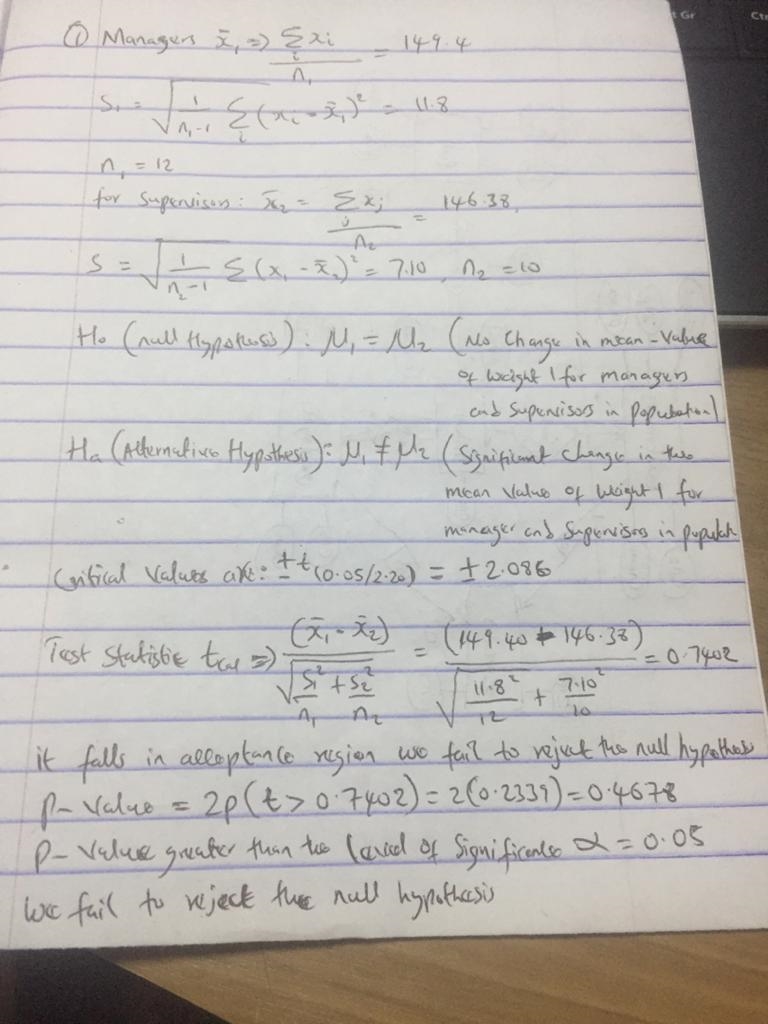 t Gr
Ctr
① Managers x̄₁ => Σᵢ xi / n₁ = 149.4
S₁ = √(1/(n₁-1) Σᵢ (xi - x̄₁)²) = 11.8
n₁ = 12
for Supervisors: x̄₂ = Σⱼ xj / n₂ = 146.38,
S = √(1/(n₂-1) Σ (x₁ - x̄₂)²) = 7.10, n₂ = 10
Ho (null Hypothesis): μ₁ = μ₂ (No Change in mean-Value
of weight 1 for managers
and Supervisors in Population)
Ha (Alternative Hypothesis): μ₁ ≠ μ₂ (Significant change in the
mean Value of weight 1 for
manager and Supervisors in populat
Critical Values are: ±t(0.05/2.20) = ±2.086
Test Statistic tcal => (x̄₁ - x̄₂) / √(S₁²/n₁ + S₂²/n₂) = (149.40 - 146.38) / √(11.8²/12 + 7.10²/10) = 0.7402
it falls in acceptance region we fail to reject the null hypothes
p-value = 2p(t > 0.7402) = 2(0.2339) = 0.4678
P-Value greater than the level of Significance α = 0.05
We fail to reject the null hypothesis